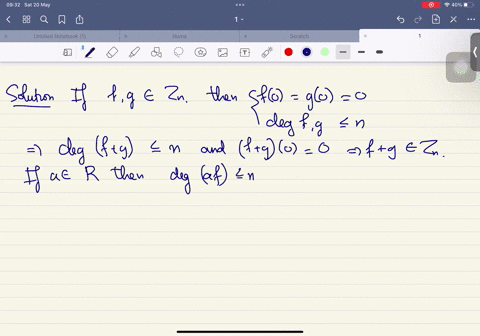 09:32 Sat 20 May
40%
1
Untitled Notebook (1)
Home
1
Solution If f, g ∈ Zn. then { f(0) = g(0) = 0
deg f, g ≤ n
⇒ deg (f+g) ≤ n and (f+g)(0) = 0 ⇒ f+g ∈ Zn.
If a ∈ R then deg (af) ≤ n